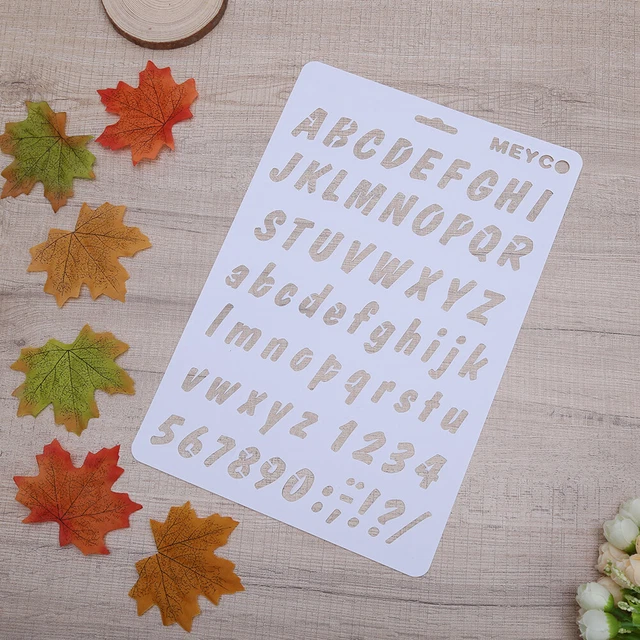 MEYCO
ABCDEFGHI
JKLMNOPQR
STUVWXYZ
abcdefghijk
lmnopqrstu
vwxyz 1234
567890:;÷!?/